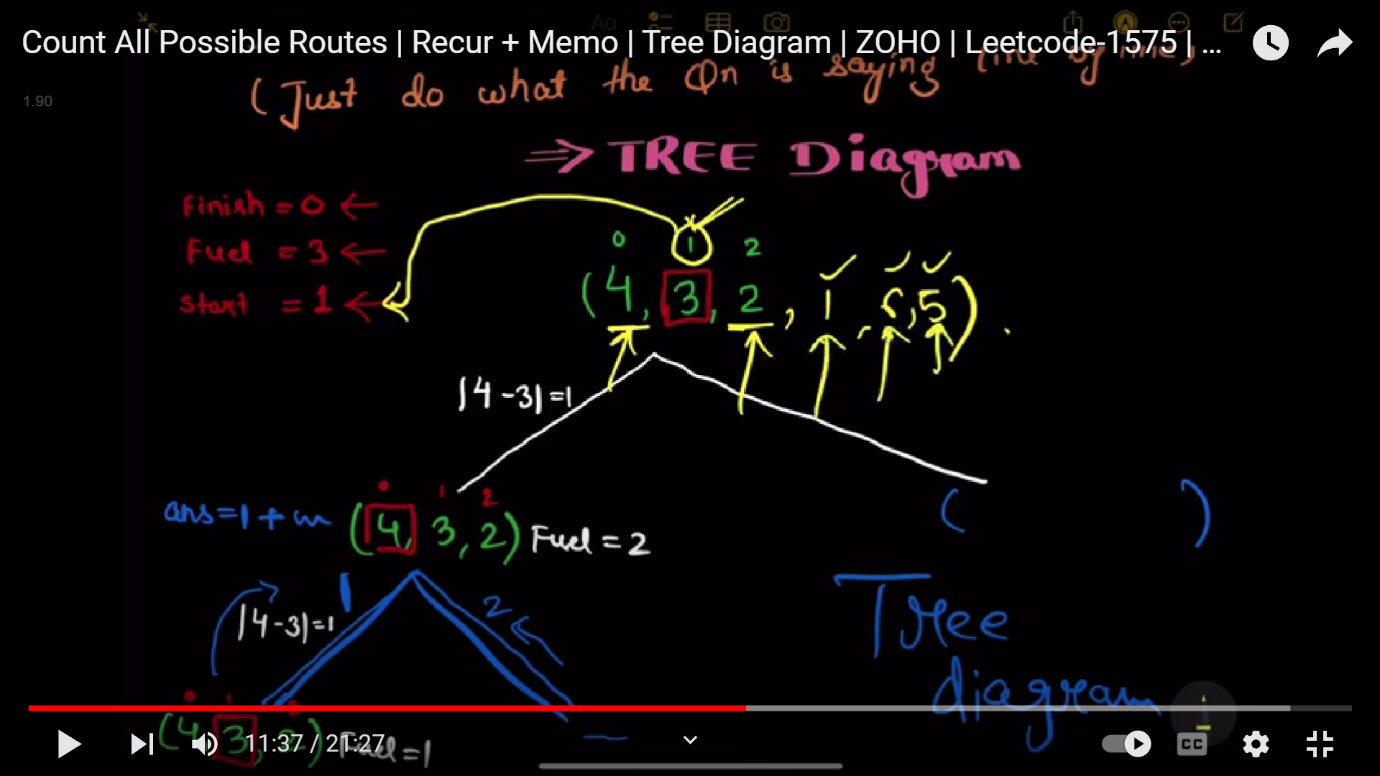 Count All Possible Routes | Recur + Memo | Tree Diagram | ZOHO | Leetcode-1575 | ...
(Just do what the Qn is saying line by line)
1.90
⇒ TREE Diagram
Finish = 0 ←
Fuel = 3 ←
Start = 1 ←
0 1 2
(4, 3, 2, 1, 6, 5).
|4-3|=1
0 1 2
ans=1+ (4, 3, 2) Fuel = 2
( )
1 2
|4-3|=1
Tree
diagram
(4, 3, 2) Fuel=1
11:37 / 21:27
CC